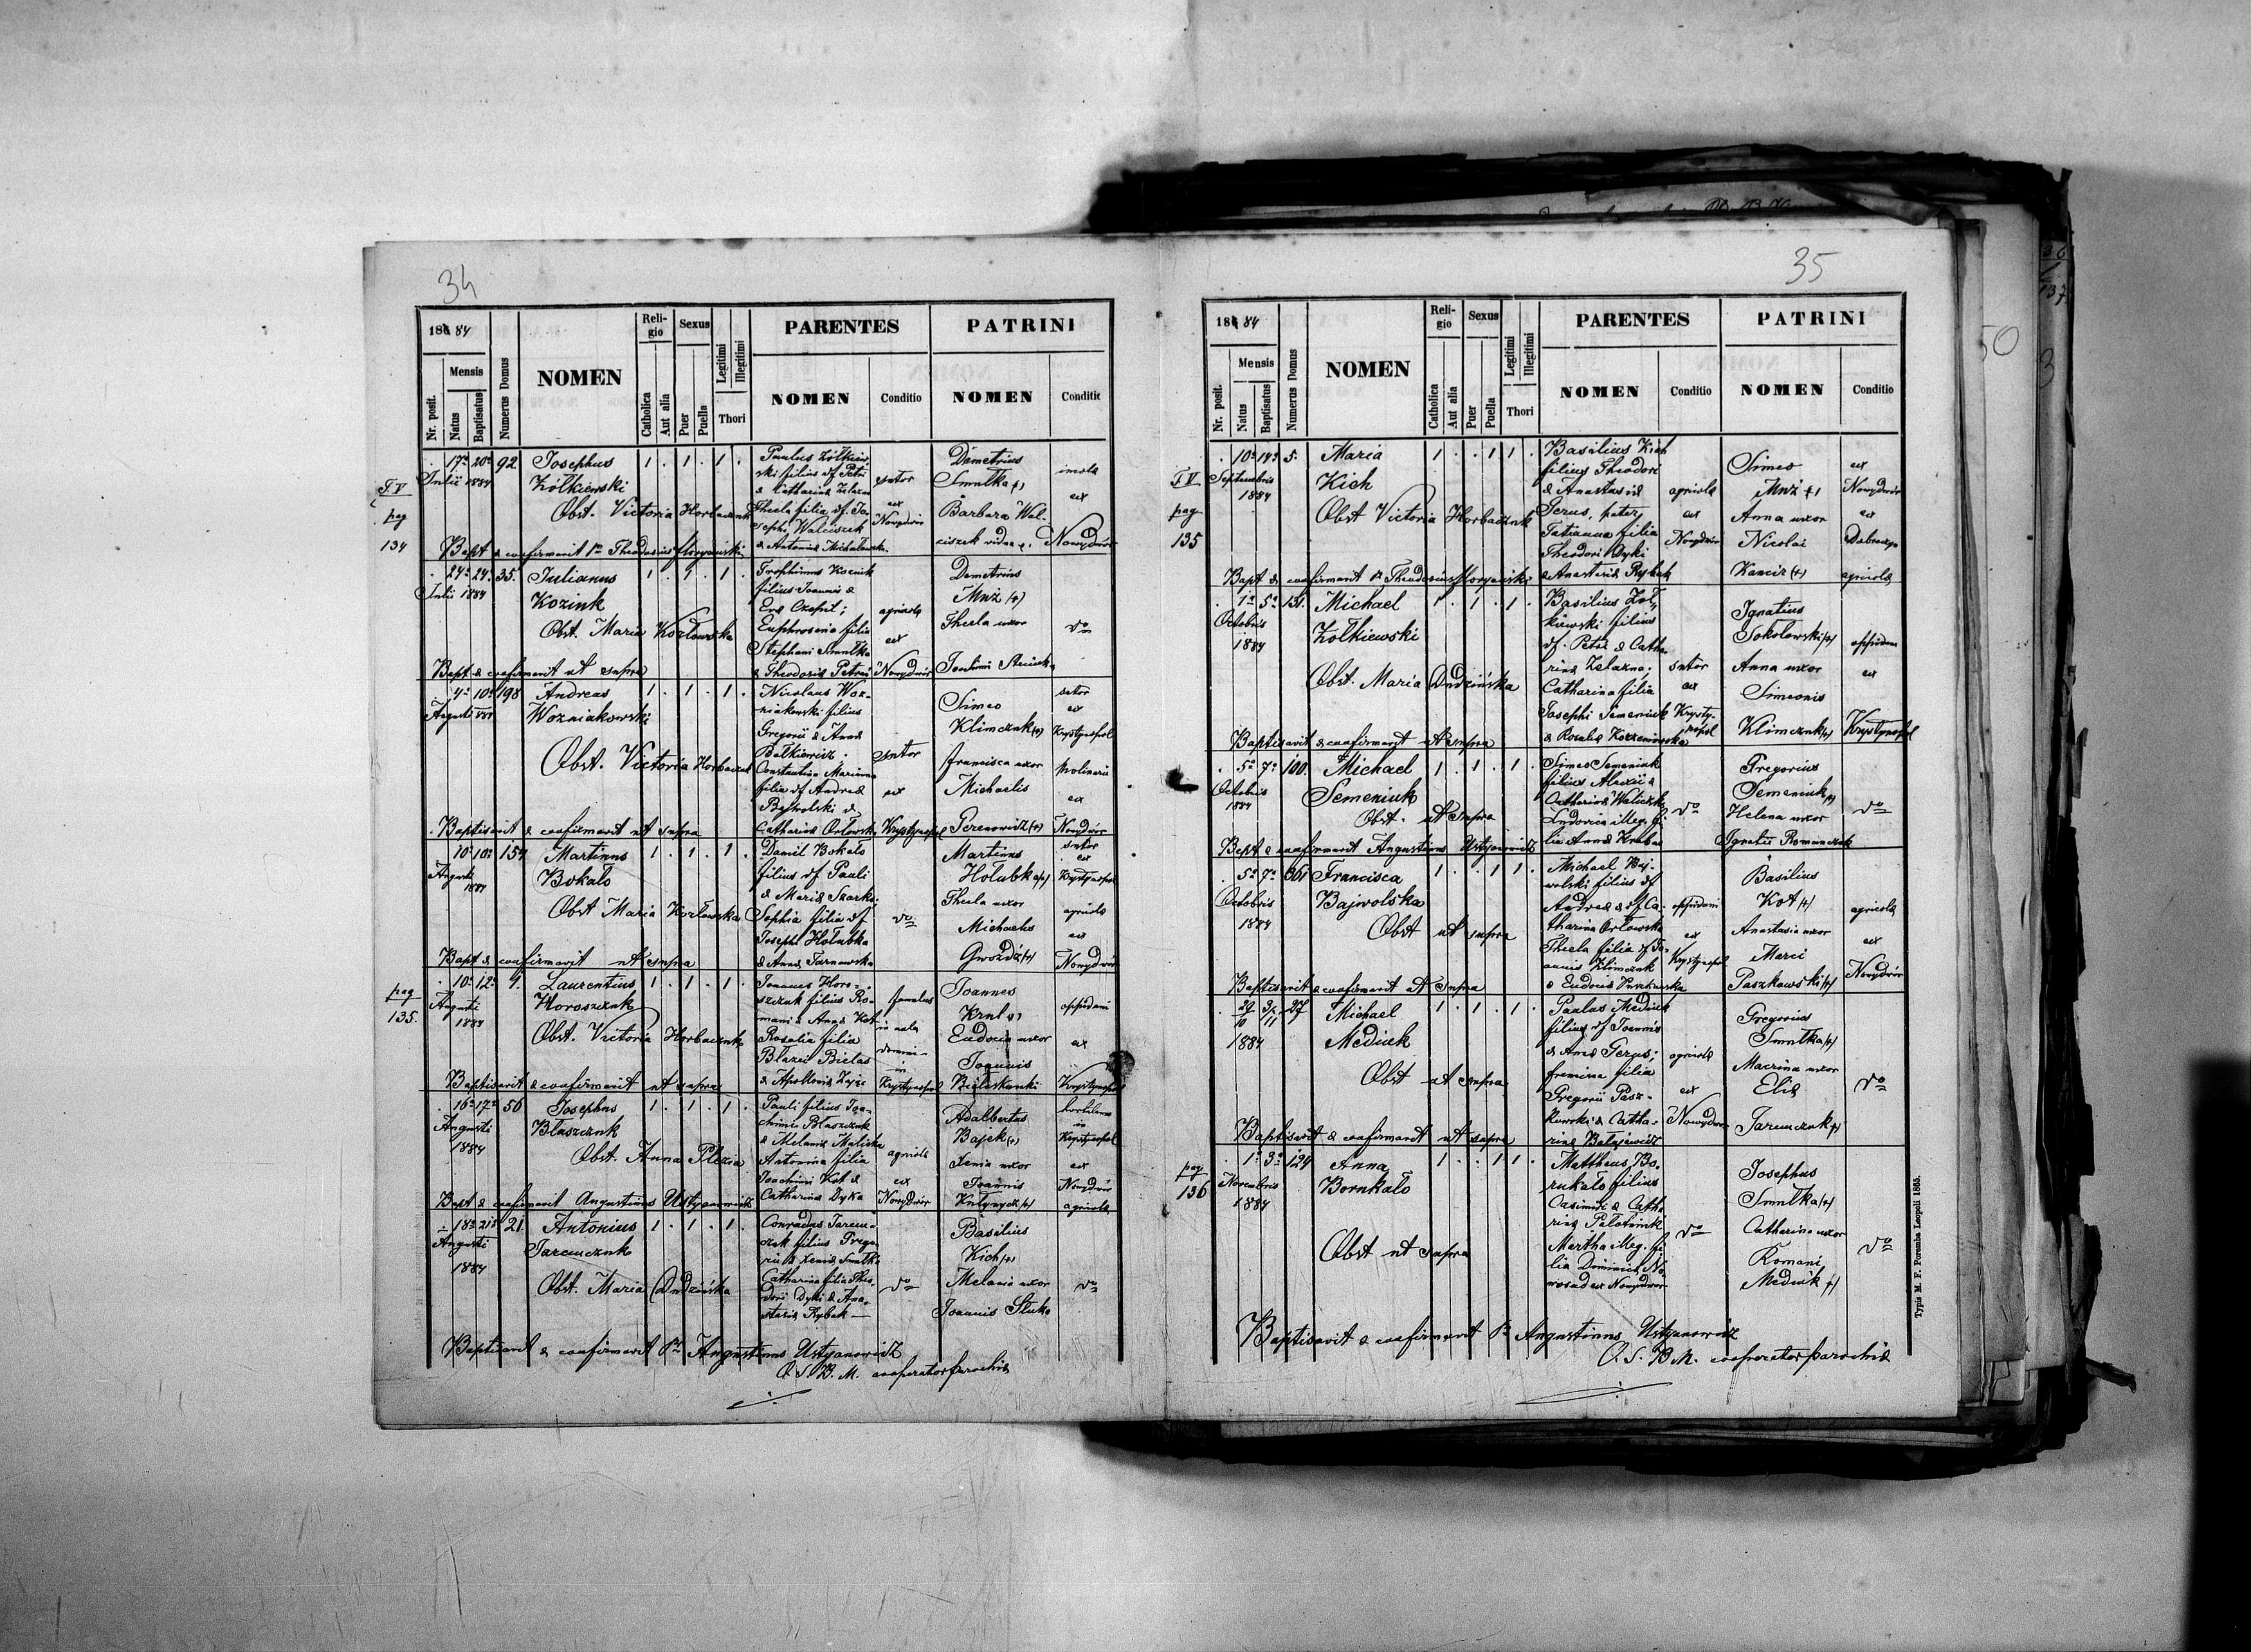 34
1884
Nr. posit.
Mensis
Natus
Baptisatus
Numerus Domus
NOMEN
Religio
Catholica
Aut alia
Sexus
Puer
Puella
Legitimi
Illegitimi
Thori
PARENTES
NOMEN
Conditio
PATRINI
NOMEN
Conditio
T. V
pag
134
17 20 92
Julii 1884
Josephus
Żółkiewski
Obst. Victoria Horbaczuk
1 . 1 . 1 .
Paulus Żółkiew
ski filius df Petri
& Catharina Żelazna
Thecla filia df. Jo
sephi Walciszek
& Antonina Michałowska
sutor
ex
Nowydwór
Demetrius
Smutka (+)
Barbara Wal-
ciszek vidua
incola
ex
Nowydwór
Bapt & confirmavit Theodosius
24 24 35.
Julii 1884
Julianus
Koziuk
Obst. Maria Kozłowska
1 . 1 . 1 .
Trophimus
filius Joannis &
Eva
Euphrosina filia
Stephani Smutka
& Theodosia Petruś
agricola
ex
Nowydwór
Demetrius
Muż (+)
Thecla uxor
Joachimi
do
Bapt & confirmavit ut supra
4 10 198
Augusti 1884
Andreas
Wozniakowski
Obst. Victoria Horbaczuk
1 . 1 . 1 .
Nicolaus Woz-
niakowski filius
Gregorii & Anna
Bałkiewicz.
Constantina Marianna
filia df Andrea
& Catharina Orłowska
sutor
ex
Krystynopol
Simeo
Klimczuk (+)
Francisca uxor
Michaelis
Gerenowicz (+)
sutor
ex
Krystynopol
Molinarii
ex
Nowydwór
Baptisavit & confirmavit ut supra
10 10 154
Augusti
1884
Martinus
Bokało
Obst Maria Kozłowska
1 . 1 . 1 .
Daniil Bokało
filius df Pauli
& Maria Szarko;
Sophia filia df
Josephi Hołubka
& Anna Tarnawska
do
Martinus
Hołubka (+)
Thecla uxor
Michaelis
Gwoźdź (+)
sutor
ex
Krystynopol
agricola
ex
Nowydwór
Bapt & confirmavit ut supra
pag
135.
10 12 9.
Augusti
1884
Laurentius
Horoszczuk
Obst. Victoria Horbaczuk
1 . 1 . 1 .
Joannes Horo-
szczuk filius Ro-
mani & Anna Kot
Rosalia filia
Błazei Bielas
& Apollonia Zając
famulus
in aula
domini-
in
Krystynopol
Joannes
Krul (+)
Eudocia uxor
Joannis
oppidani
ex
Krystynopol
Baptisavit & confirmavit ut supra
16 17 56
Augusti
1884
Josephus
Błaszczuk
Obst. Anna Plezia
1 . 1 . 1 .
Pauli filius Joa-
chimi Błaszczuk
& Melania Maliska
Antonina filia
Joachimi Kot &
Catharina Dyka
agricola
ex
Nowydwór
Adalbertus
Bajek (+)
Xenia uxor
Joannis
in
Krystynopol
ex
Nowydwór
agricola
Bapt & confirmavit Augustinus Ustyanowicz
18 21 21.
Augusti
1884
Antonius
Jaremczuk
Obst. Maria Dudzińska
1 . 1 . 1 .
Conradus Jarem-
czuk filius Grego
rii & Xenia Smutka
Catharina filia Theo
dori Dyki & Ana-
stasia Rybak
do
Basilius
Kich (+)
Melania uxor
Joannis
do
Baptisavit & confirmavit Pr Augustinus Ustyanowicz
O. S. B. M. cooperator parochiæ
35
1884
Nr. posit.
Mensis
Natus
Baptisatus
Numerus Domus
NOMEN
Religio
Catholica
Aut alia
Sexus
Puer
Puella
Legitimi
Illegitimi
Thori
PARENTES
NOMEN
Conditio
PATRINI
NOMEN
Conditio
T. V
pag
135
10 14 5.
Septembris
1884
Maria
Kich
Obst Victoria Horbaczuk
1 . . 1 1 .
Basilius Kich
filius Theodori
& Anastasia
Gerus, pater,
Tatianna filia
Theodori Dyki
& Anastasia Rybak
agricola
ex
Nowydwór
Simeo
Muż (+)
Anna uxor
Nicolai
ex
Nowydwór
ex
agricola
Bapt & confirmavit Pr Theodosius
1 5 131.
Octobris
1884
Michael
Żołkiewski
Obst. Maria Dudzińska
1 . 1 . 1 .
Basilius Żoł
kiewski filius
df. Petri & Catha
rina Żelazna;
Catharina filia
Josephi Semeniuk
& Rosalia Korzeniowska
sutor
ex
Krysty-
nopol
Ignatius
Sokołowski (+)
Anna uxor
Simeonis
Klimczuk (+)
ex
Krystynopol
Baptisavit & confirmavit ut supra
5 7 100.
Octobris
1884
Michael
Semeniuk
Obst. ut supra
1 . 1 . 1 .
Simeo Semeniuk
filius Alexii &
Catharina
Ludovica illeg. fi-
lia Anna
do
Gregorius
Semeniuk (+)
Helena uxor
Ignatii Romanczuk
do
Bapt & confirmavit Augustinus Ustyanowicz
5 7 361
Octobris
1884
Francisca
Bajwolska
Obst ut supra
1 . . 1 1 .
Michael Baj-
wolski filius df
Andrea & df Ca-
tharina Orłowska
Thecla filia df Jo-
annis Klimczuk
& Eudocia
oppidani
ex
Krystynopol
Basilius
Kot (+)
Anastasia uxor
Marci
Paszkowski (+)
agricola
ex
Nowydwór
Baptisavit & confirmavit ut supra
29/10 3/11 27
1884
Michael
Mediuk
Obst ut supra
1 . 1 . 1 .
Paulus Mediuk
filius df Joannis
& Anna Gerus;
filia
Gregorii Pasz-
kowski & Catha-
rina Bałajewicz
agricola
ex
Nowydwór
Gregorius
Smutka (+)
Macrina uxor
Eliæ
Jaremczuk (+)
do
Baptisavit & confirmavit ut supra
pag
136
1 3 124
Novembris
1884
Anna
Borukało
Obst ut supra
1 . . 1 1 .
Mattheus Bo-
rukało filius
Casimiri & Catha
rina
Martha illeg. fi
lia Dominica
ex Nowydwór
do
Josephus
Smutka (+)
Catharina uxor
Romani
Mediuk (+)
do
Baptisavit & confirmavit Pr Augustinus Ustyanowicz
O. S. B. M. cooperator parochiæ
Typis M. F. Poremba Leopoli 1865.
50